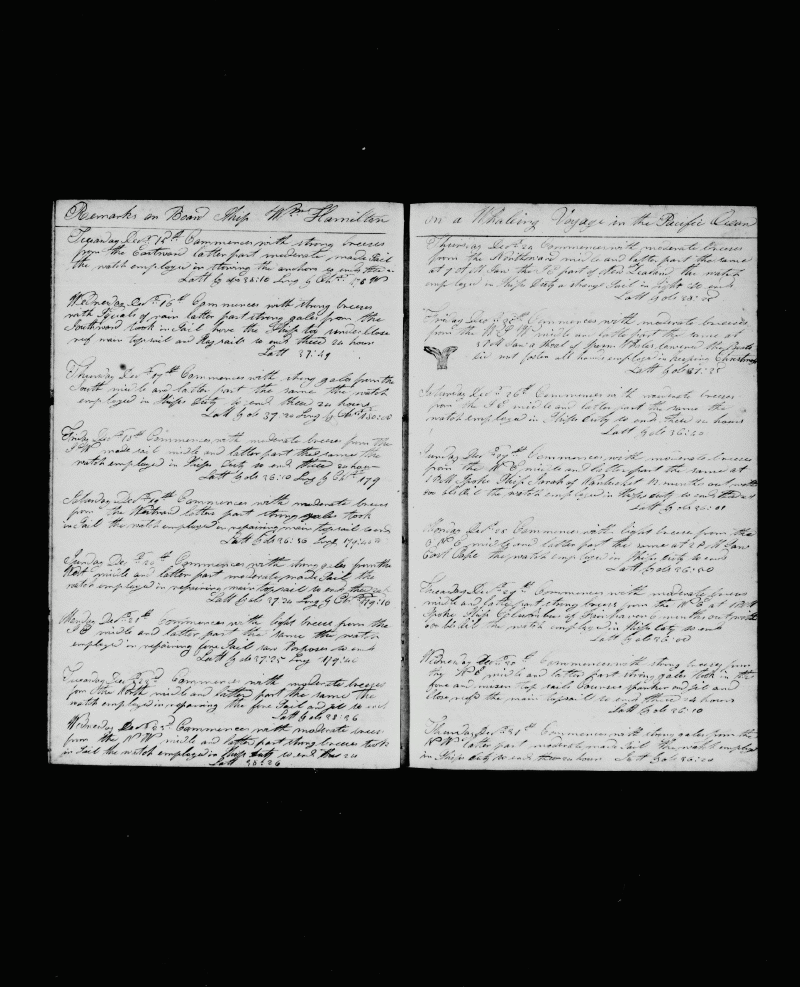 Remarks on Board Ship Wm Hamilton
Tuesday Decr 15th Commences with strong breezes
from the Eastward latter part moderate made Sail
the watch employed in stowing the anchors so ends these 24
Latt by obs 36:10 Long by Chr
Wednesday Decr 16th Commences with strong breezes
with Squals of rain latter part strong gales from the
Southward took in Sail hove the Ship too under close
reef main top sail and stay sails so ends these 24 hours
Latt 37:49
Thursday Decr 17th Commences with strong gales from the
South middle and latter part the same the watch
employed in Ships Duty so ends these 24 hours
Latt by obs 37:20 Long by Chr 180:00
Friday Decr 18th Commences with moderate breezes from the
S W made sail middle and latter part the same the
watch employed in Ships Duty so ends these 24 hours
Latt by obs 36:10 Long by Chr 179
Saturday Decr 19th Commences with moderate breezes
from the Westward latter part strong gales took
in Sail the watch employed in repairing main top sail
Latt by obs 36:56 Long 179:40
Sunday Decr 20th Commences with strong gales from the
West middle and latter part moderate made Sail the
watch employed in repairing main top sail so ends these 24
Latt by obs 37:30 Long by Chr 179:10
Monday Decr 21st Commences with light breezes from the
S E middle and latter part the same the watch
employed in repairing fore Sail so ends
Latt by obs 37:25 Long 179:00
Tuesday Decr 22d Commences with moderate breezes
from the North middle and latter part the same the
watch employed in repairing the fore Sail and jib so ends
Latt by obs 38:26
Wednesday Decr 23d Commences with moderate breezes
from the N W middle and latter part strong breezes took
in Sail the watch employed in Ships duty so ends these 24
Latt 38:26
on a Whaling Voyage in the Pacific Ocean
Thursday Decr 24 Commences with moderate breezes
from the Northward middle and latter part the same
at 1 P M Saw the S E part of New Zealand the watch
employed in Ships Duty a strange Sail in Sight so ends
Latt by obs 38:28
Friday Decr 25th Commences with moderate breezes
from the W S W middle and latter part the same at
P M Saw a Shoal of Sperm Whales lowered the Boats
did not fasten all hands employed in keeping Christmas
Latt by obs 37:28
Saturday Decr 26th Commences with moderate breezes
from the S E middle and latter part the same the
watch employed in Ships Duty so ends these 24 hours
Latt by obs 36:50
Sunday Decr 27th Commences with moderate breezes
from the N E middle and latter part the same at
P M Spoke Ship Sarah of Nantucket months out with
bbls Oil the watch employed in Ships duty so ends these 24
Latt by obs 36:41
Monday Decr 28 Commences with light breezes from the
N E middle and latter part the same at 2 P M Saw
East Cape the watch employed in Ships Duty so ends
Latt by obs 36:50
Tuesday Decr 29th Commences with moderate breezes
middle and latter part strong breezes from the N E at P M
Spoke Ship Columbus of Fairhaven 6 months out with
bbls the watch employed in Ships Duty so ends
Latt by obs 36:00
Wednesday Decr 30th Commences with strong breezes from
the N E middle and latter part strong gales took in the
fore and mizen top sails Courses spanker and jib and
close reef the main top sail so ends these 24 hours
Latt by obs 36:10
Thursday Decr 31st Commences with strong gales from the
N W latter part moderate made sail the watch employed
in Ships duty so ends these 24 hours Latt by obs 36:20